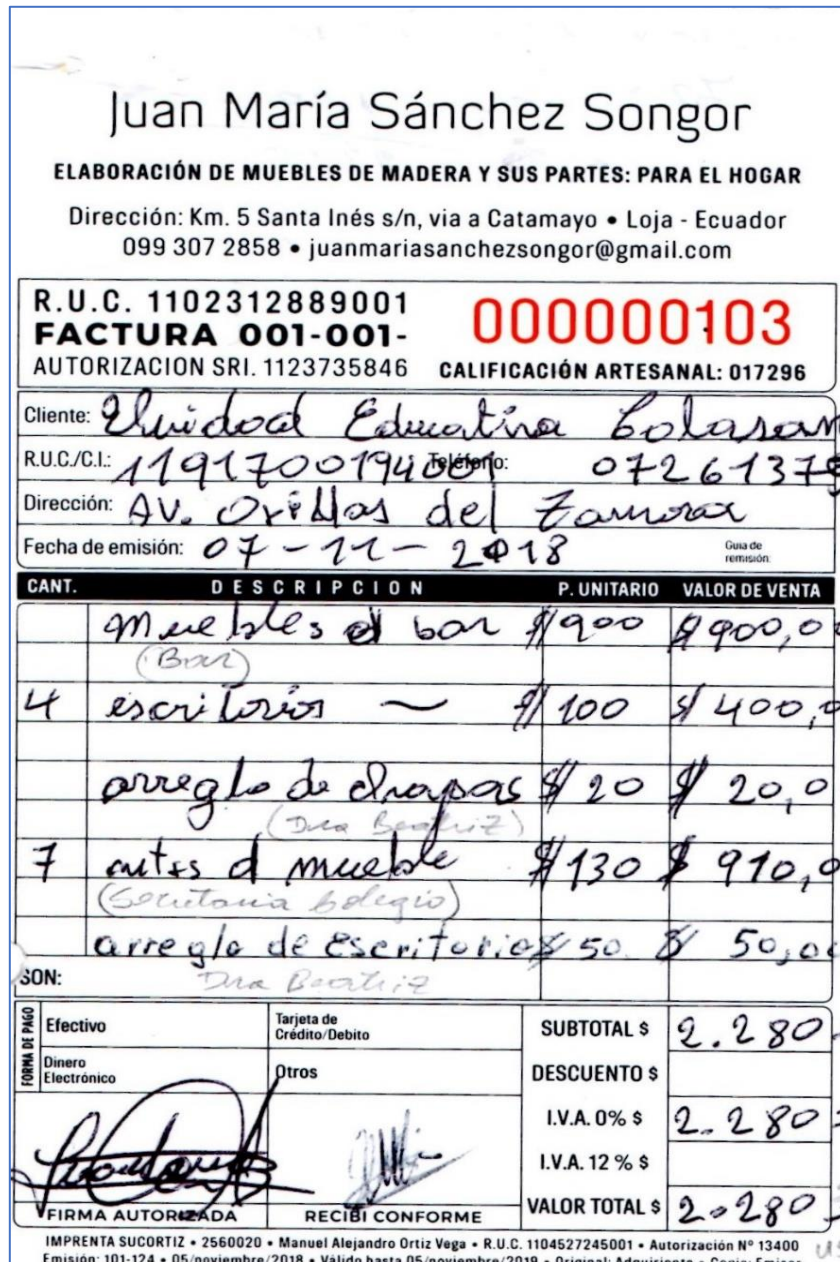 Juan María Sánchez Songor
ELABORACIÓN DE MUEBLES DE MADERA Y SUS PARTES: PARA EL HOGAR
Dirección: Km. 5 Santa Inés s/n, via a Catamayo • Loja - Ecuador
099 307 2858 • juanmariasanchezsongor@gmail.com
R.U.C. 1102312889001
FACTURA 001-001- 000000103
AUTORIZACION SRI. 1123735846 CALIFICACIÓN ARTESANAL: 017296
Cliente: Unidad Educativa Calasan
R.U.C./C.I.: 1191700194001 Teléfono: 07261375
Dirección: Av. Orillas del Zamora
Fecha de emisión: 07-11-2018 Guia de remisión:
CANT. DESCRIPCION P. UNITARIO VALOR DE VENTA
Muebles d bar $ 900 $ 900,0
(Bar)
4 escritorios — $ 100 $ 400,0
arreglo de chapas $ 20 $ 20,0
(Dra Beatriz)
7 mts d mueble $ 130 $ 910,0
(Secretaria Colegio)
arreglo de Escritorio $ 50. $ 50,00
SON: Dra Beatriz
FORMA DE PAGO
Efectivo Tarjeta de Crédito/Debito SUBTOTAL $ 2.280
Dinero Electrónico Otros DESCUENTO $
I.V.A. 0% $ 2.280
I.V.A. 12 % $
FIRMA AUTORIZADA RECIBI CONFORME VALOR TOTAL $ 2.280
IMPRENTA SUCORTIZ • 2560020 • Manuel Alejandro Ortiz Vega • R.U.C. 1104527245001 • Autorización Nº 13400
Emisión: 101-124 • 05/noviembre/2018 • Válido hasta 05/noviembre/2019 • Original: Adquiriente • Copia: Emisor